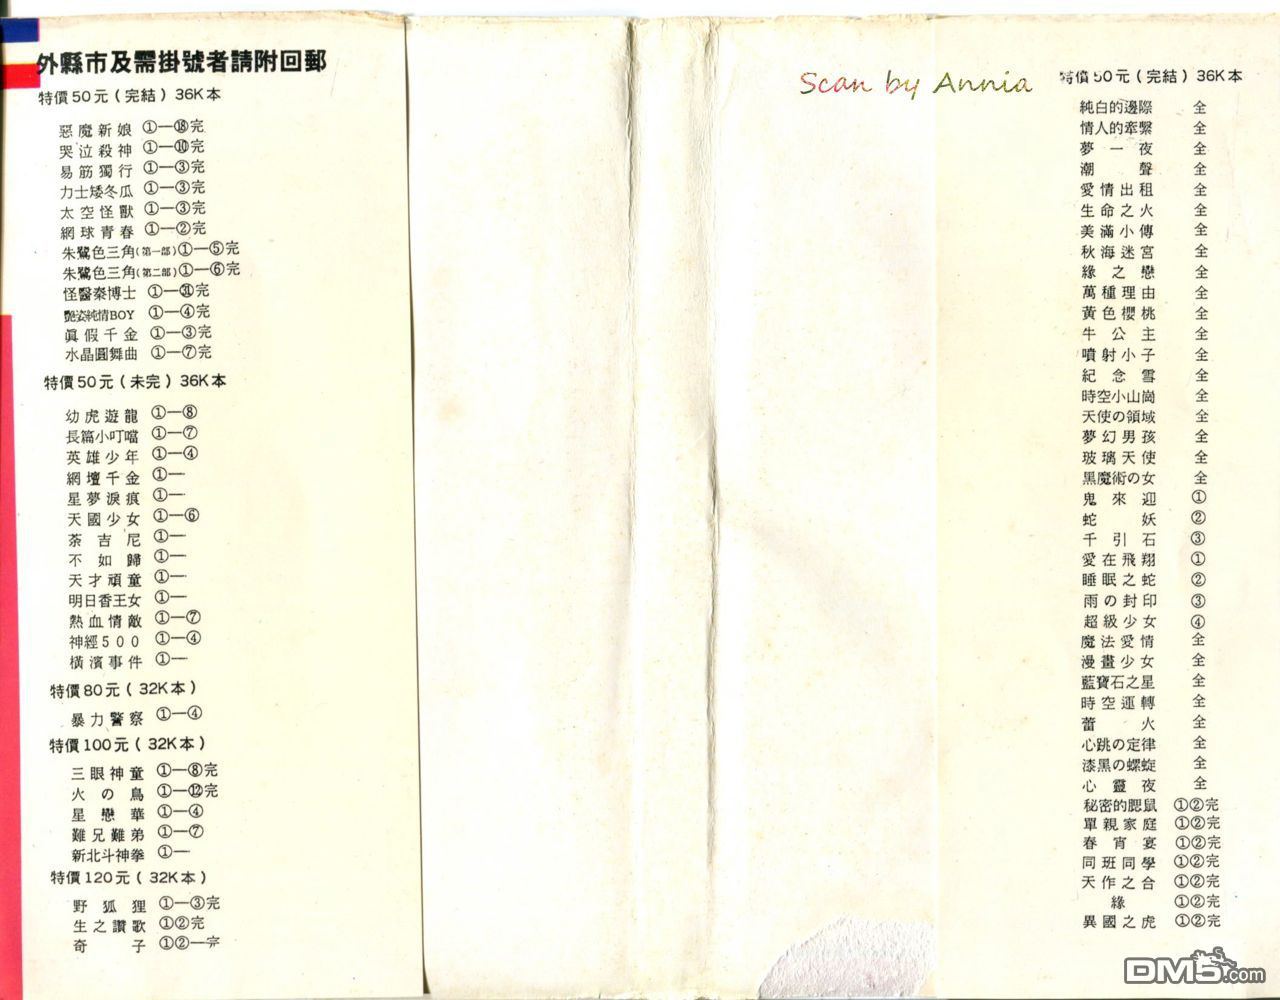 外縣市及需掛號者請附回郵
特價50元(完結)36K本
惡魔新娘 ①—⑱完
哭泣殺神 ①—⑩完
易筋獨行 ①—③完
力士矮冬瓜 ①—③完
太空怪獸 ①—③完
網球青春 ①—②完
朱鷺色三角(第一部)①—⑤完
朱鷺色三角(第二部)①—⑥完
怪醫秦博士 ①—㉛完
艷姿純情BOY ①—④完
眞假千金 ①—③完
水晶圓舞曲 ①—⑦完
特價50元(未完)36K本
幼虎遊龍 ①—⑧
長篇小叮噹 ①—⑦
英雄少年 ①—④
網壇千金 ①—
星夢淚痕 ①—
天國少女 ①—⑥
荼吉尼 ①—
不如歸 ①—
天才頑童 ①—
明日香王女 ①—
熱血情敵 ①—⑦
神經500 ①—④
橫濱事件 ①—
特價80元(32K本)
暴力警察 ①—④
特價100元(32K本)
三眼神童 ①—⑧完
火の鳥 ①—⑫完
星戀華 ①—④
難兄難弟 ①—⑦
新北斗神拳 ①—
特價120元(32K本)
野狐狸 ①—③完
生之讚歌 ①②完
奇子 ①②—完
Scan by Annia
特價50元(完結)36K本
純白的邊際 全
情人的牽繫 全
夢一夜 全
潮聲 全
愛情出租 全
生命之火 全
美滿小傳 全
秋海迷宮 全
緣之戀 全
萬種理由 全
黃色櫻桃 全
牛公主 全
噴射小子 全
紀念雪 全
時空小山崗 全
天使の領域 全
夢幻男孩 全
玻璃天使 全
黑魔術の女 全
鬼來迎 ①
蛇妖 ②
千引石 ③
愛在飛翔 ①
睡眠之蛇 ②
雨の封印 ③
超級少女 ④
魔法愛情 全
漫畫少女 全
藍寶石之星 全
時空運轉 全
蕾火 全
心跳の定律 全
漆黑の螺蜁 全
心靈夜 全
秘密的腮鼠 ①②完
單親家庭 ①②完
春宵宴 ①②完
同班同學 ①②完
天作之合 ①②完
緣 ①②完
異國之虎 ①②完
DM5.com